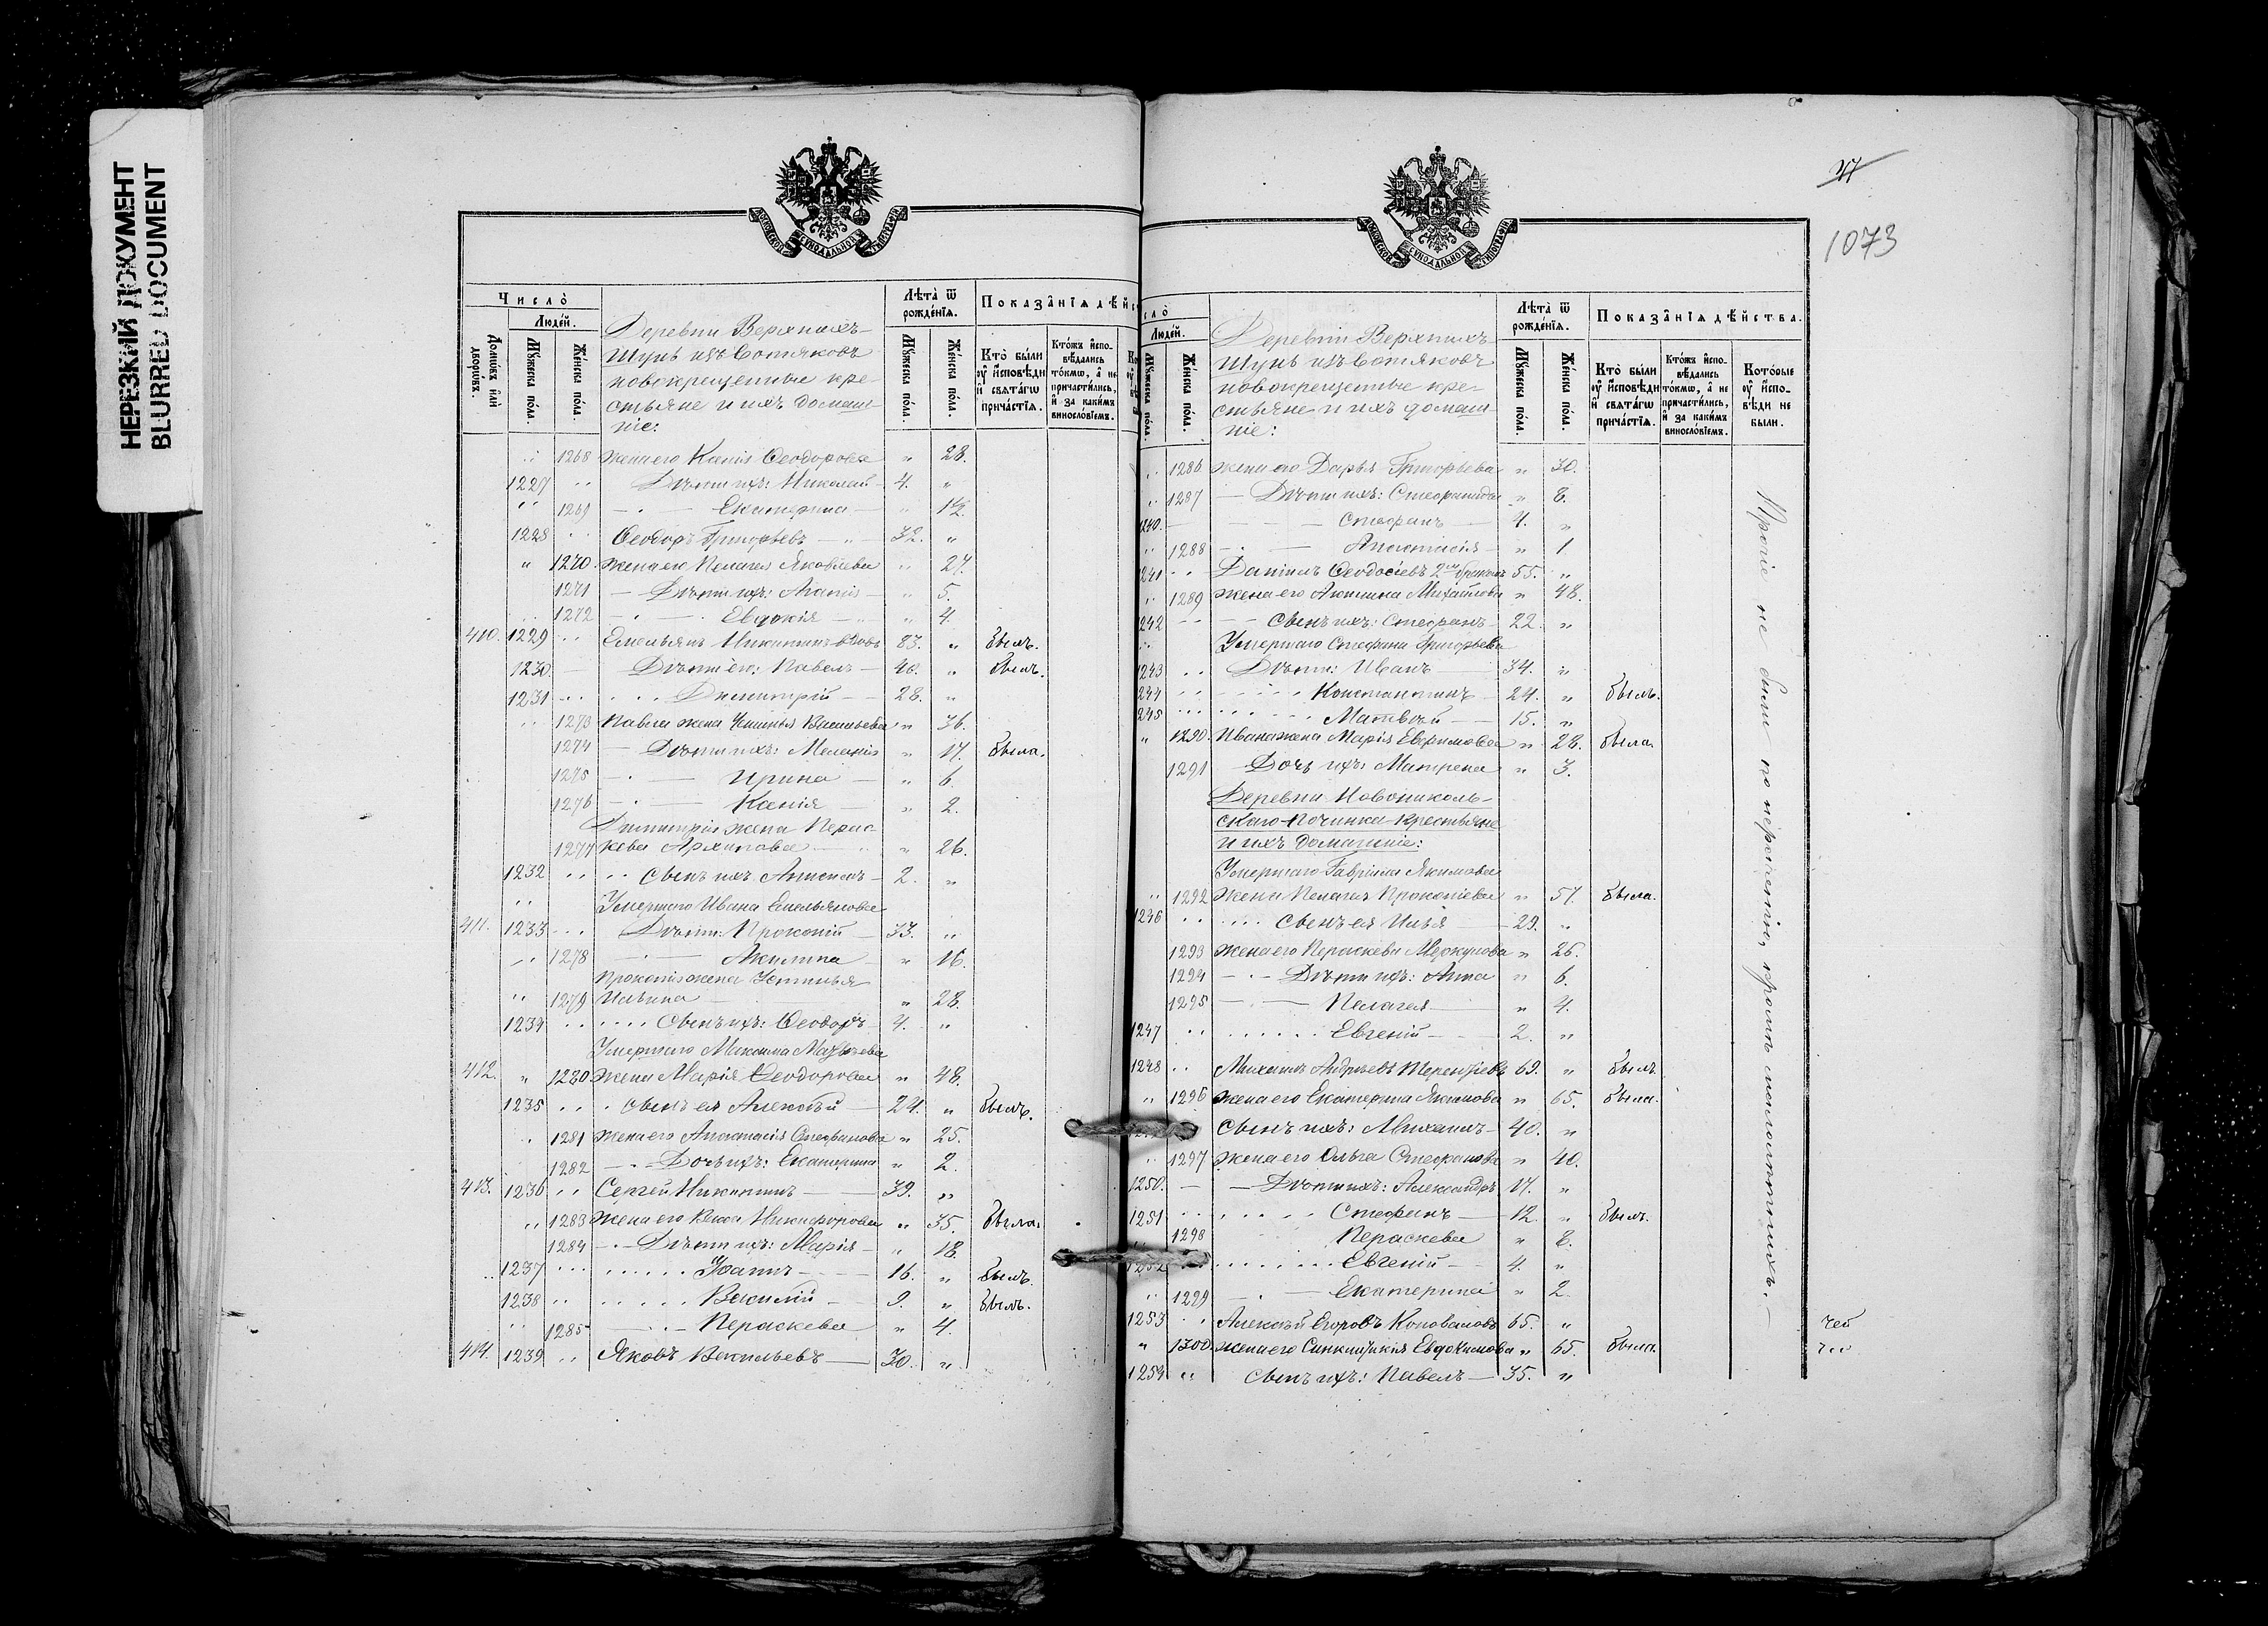 НЕРЕЗКИЙ ДОКУМЕНТ
BLURRED DOCUMENT
Число̀
Людей.
Домѡвъ или дворѡвъ.
Мꙋжеска пола.
Женска пола.
Деревни Верхнихъ
Шунь изъ Вотяковъ
новокрещенные кре-
стьяне и ихъ домаш-
ніе:
Лѣта ѿ рожденїѧ.
Мꙋжеска пола.
Женска пола.
Показанїѧ дѣйс
Кто были ѹ исповѣди и свѧтагѡ причастїѧ.
Ктожъ исповѣдались токмѡ, а не причастились, и за какимъ винословїемъ.
„ 1268 жена его Ксенія Ѳеодорова „ 28.
1227 „ Дѣти ихъ: Николай 4. „
„ 1269 Екатерина „ 1½.
1228 „ Ѳеодоръ Григорьевъ 32. „
„ 1270. жена его Пелагея Яковлева „ 27.
1271 Дѣти ихъ: „ 5.
1272 Евдокія „ 4.
410. 1229 „ Емельянъ Никитинъ вдовъ 83. „ былъ.
1230. Дѣти его: Павелъ 40. „ былъ.
1231 Димитрій 28. „
„ 1273 Павла жена Устинья Васильева „ 36.
1274 Дѣти ихъ: „ 17. была.
1275 Ирина „ 6.
1276 Ксенія „ 2.
Димитрія жена Перас-
1277 кева Архипова „ 26.
1232 Сынъ ихъ 2. „
Умершаго Ивана Емельянова
411. 1233 Дѣти: Прокопій 33. „
„ 1278 Акилина „ 16.
Прокопія жена Устинья
„ 1279 Ильина „ 28.
1234 Сынъ ихъ: Ѳеодоръ 4. „
Умершаго Максима Матвѣева
412. „ 1280 Жена Марія Ѳеодорова „ 48.
1235 сынъ ея Алексѣй 24. „ былъ.
„ 1281 жена его Анастасія Стефанова „ 25.
1282 Дочь ихъ: Екатерина „ 2.
413. 1236 „ Сергей Никитинъ 39. „
„ 1283 Жена его Никифорова „ 35. была.
1284 Дѣти ихъ: Марія „ 18.
1237 Іоаннъ 16. „ былъ.
1238 Василій 9. „ былъ.
1285 Пераскева „ 4.
414. 1239 „ Яковъ Васильевъ 30. „
1073
ло̀
Людей.
Мꙋжеска пола.
Женска пола.
Деревни Верхнихъ
Шунь изъ Вотяковъ
новокрещенные кре-
стьяне и ихъ домаш-
ніе:
Лѣта ѿ рожденїѧ.
Мꙋжеска пола.
Женска пола.
Показанїѧ дѣйства.
Кто были ѹ исповѣди и свѧтагѡ причастїѧ.
Ктожъ исповѣдались токмѡ, а не причастились, и за какимъ винословїемъ.
Которые ѹ исповѣди не были.
„ 1286 жена его Дарья Григорьева „ 30.
„ 1287 Дѣти ихъ: Стефанида „ 8.
1240. Стефанъ 4. „
„ 1288 Анастасія „ 1
241 Даніилъ Ѳеодосіевъ 2мъ бракомъ 55. „
„ 1289 жена его Михайлова „ 48.
242 Сынъ ихъ: Стефанъ 22. „
Умершаго Стефана Григорьева
1243 Дѣти: Иванъ 34. „
244 Константинъ 24. „ былъ.
245 Матвѣй 15. „
„ 1290. Ивана жена Марія Евфимова „ 28. была.
1291 Дочь ихъ: Матрена „ 3.
Деревни Новониколь-
скаго Починка Крестьяне
и ихъ домашніе:
Умершаго Гавріила Якимова
„ 1292 Жена Пелагея Прокопіева „ 57. была.
1246 Сынъ ея Илья 29. „
1293 жена его Пераскева Меркулова „ 26.
1294 Дѣти ихъ: Анна „ 6.
1295 Пелагея „ 4.
1247 Евгеній 2. „
1248 Михаилъ Андреевъ Терентьевъ 69. „ былъ
„ 1296 жена его Екатерина Якимова „ 65. была.
Сынъ ихъ: Михаилъ 40. „
„ 1297 жена его Ольга Стефанова „ 40.
1250. Дѣти ихъ: Александръ 17. „
1251 Стефанъ 12. „ былъ.
1298 Пераскева „ 8.
1252 Евгеній 4. „
„ 1299 Екатерина „ 2.
1253 Алексѣй Егоровъ Коноваловъ 65. „
„ 1300 жена его Синклитикія Евдокимова „ 65. была.
1254 „ Сынъ ихъ: Павелъ 35. „
Прочіе не были по нераченію, кромѣ малолѣтнихъ.